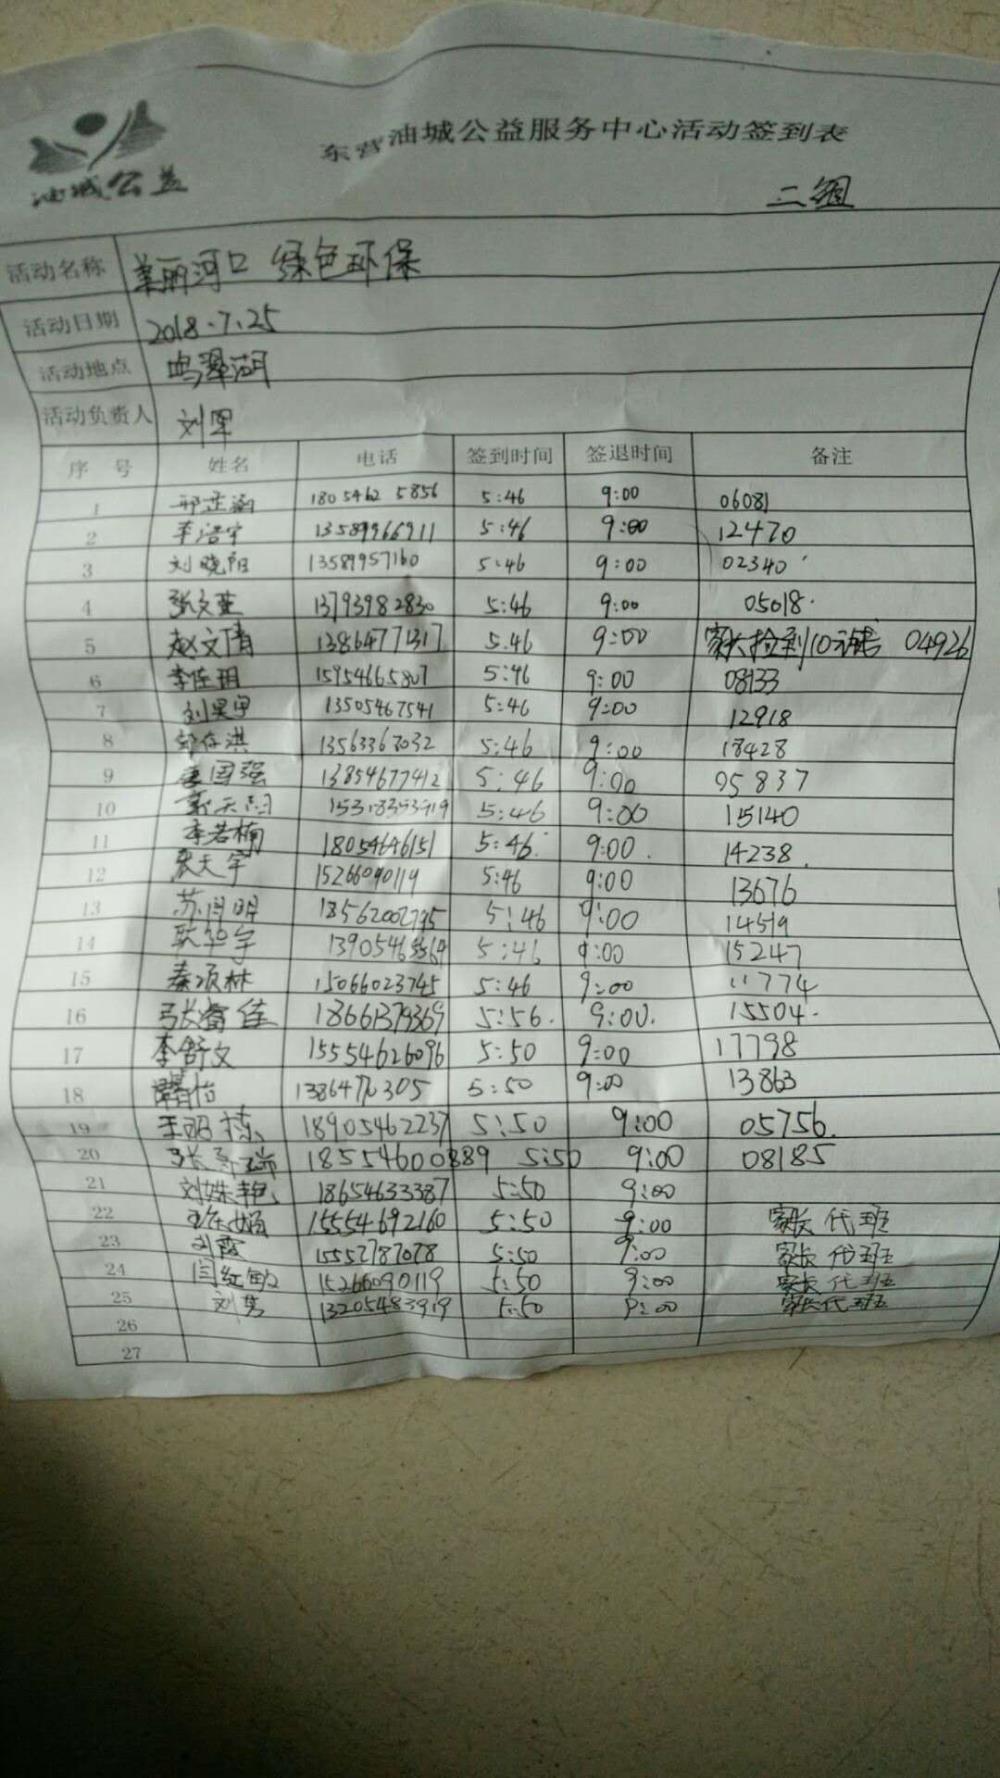 油城公益
东营油城公益服务中心活动签到表
二组
活动名称 美丽河口 绿色环保
活动日期 2018.7.25
活动地点 鸣翠湖
活动负责人 刘军
序号 姓名 电话 签到时间 签退时间 备注
1 邢芷涵 18054625856 5:46 9:00 06081
2 李浩宇 13589966911 5:46 9:00 12470
3 刘晓阳 13589957160 5:46 9:00 02340
4 张文萱 13793982830 5:46 9:00 05018.
5 赵文倩 13864771317 5.46 9:00 家长捡到10元钱 04926
6 李佳玥 15954665807 5:46 9:00 08133
7 刘昊宇 13505467541 5:46 9:00 12918
8 存洪 13563368032 5:46 9:00 18428
9 国强 13854677412 5:46 9:00 05837
10 15318353919 5:46 9:00 15140
11 李若楠 18054646151 5:46. 9:00. 14238.
12 天宇 15266090119 5:46 9:00 13676
13 苏明 18562002795 5:46 9:00 14519
14 耿华宇 5:46 9:00 15247
15 秦项林 15066023745 5:46 9:00 11774
16 张睿佳 18661379369 5:56. 9:00. 15504.
17 李舒文 15554626096 5:50 9:00 17798
18 怡 5:50 9:00 13863
19 王昭栋 18905462237 5:50 9:00 05756.
20 张瑞 18554600889 5:50 9:00 08185
21 刘姝艳 18654633387 5:50 9:00
22 15554692160 5:50 9:00 家长代班
23 刘霞 15552787078 5:50 9:00 家长代班
24 闫红敏 15266090119 5:50 9:00 家长代班
25 刘芳 13205483919 5:50 9:00 家长代班
26
27